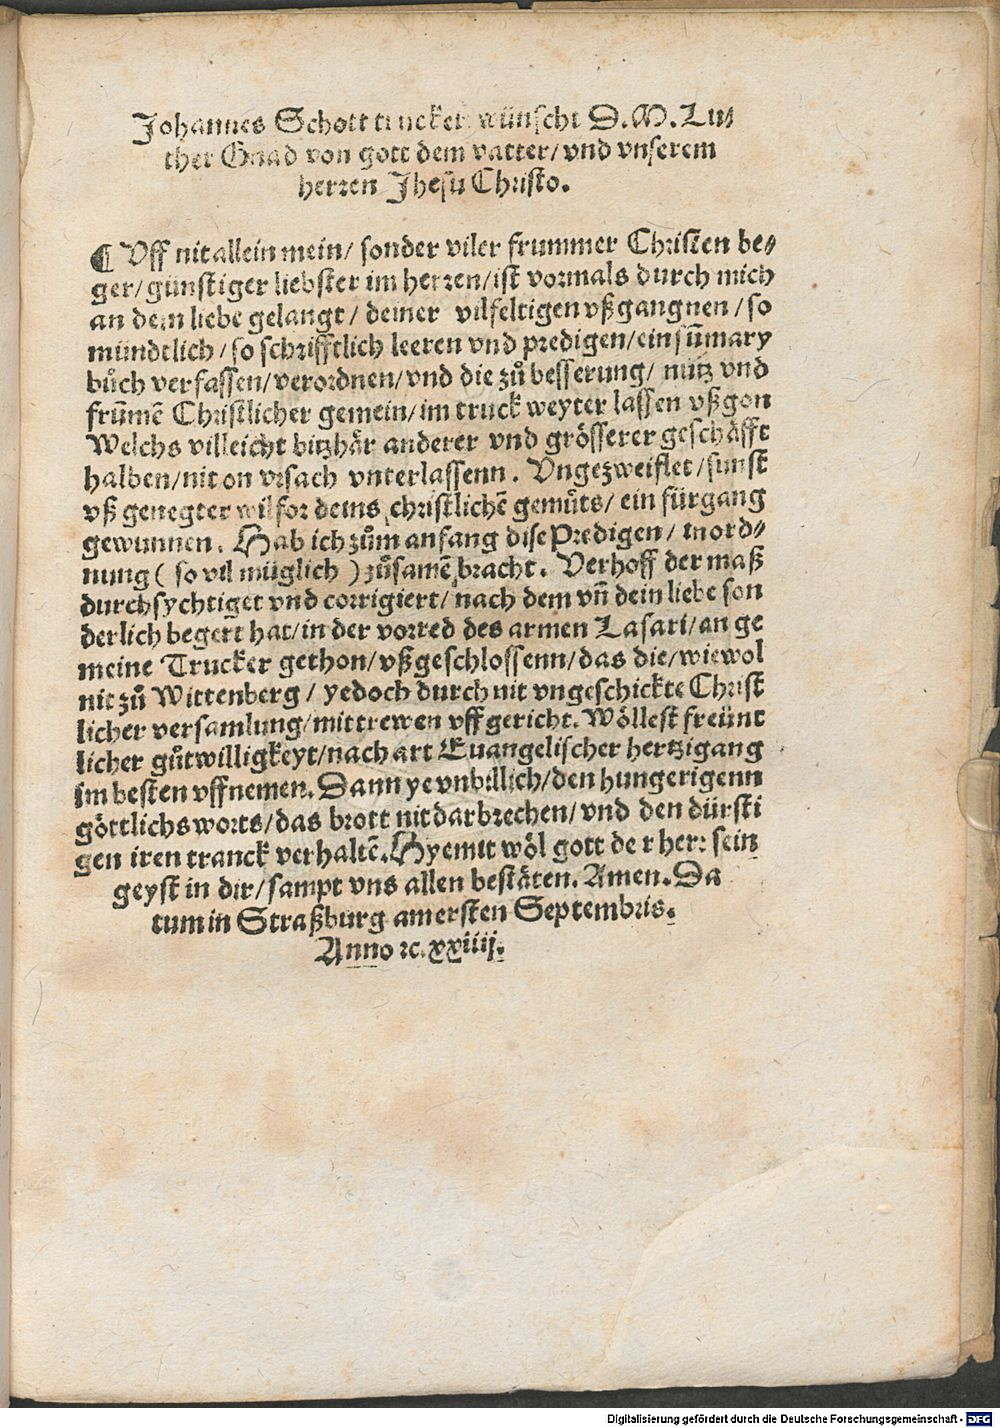 Johannes Schott trucker wünscht D.M.Lu⸗
ther Gnad von gott dem vatter/ vnd vnserem
herren Jhesu Christo.
¶ Vff nit allein mein/ sonder viler frummer Christen be⸗
ger/ günstiger liebster im herren/ ist vormals durch mich
an dem liebe gelangt/ deiner vilfeltigen vßgangnen/ so
mündtlich/ so schrifftlich leeren vnd predigen/ ein sum̄ary
bůch verfassen/ verordnen/ vnd die zů besserung/ nutz vnd
frūmē Christlicher gemein/ im truck weyter lassen vßgon
Welchs villeicht bitzhär anderer vnd grösserer geschäfft
halben/ nit on vrsach vnterlassenn. Vngezweiflet/ sunst
vß genegter wilfor deins christlichē gemůts/ ein fürgang
gewunnen. Hab ich zům anfang dise Predigen/ in ord⸗
nung ( so vil müglich ) zůsamē bracht. Verhoff der maß
durchsychtiget vnd corrigiert/ nach dem vn̄ dein liebe son
derlich begert hat/ in der vorred des armen Lasari/ an ge
meine Trucker gethon/ vßgeschlossenn/ das die/ wiewol
nit zů Wittenberg/ yedoch durch nit vngeschickte Christ
licher versamlung/ mit trewen vffgericht. Wöllest freünt
licher gůtwilligkeyt/ nach art Euangelischer hertzigang
im besten vffnemen. Dann ye vnbillich/ den hungerigenn
göttlichs worts/ das brott nit darbrechen/ vnd den dürsti
gen iren tranck verhaltē. Hyemit wöl gott der herr sein
geyst in dir/ sampt vns allen bestäten. Amen. Da
tum in Straßburg am ersten Septembris.
Anno ꝛc. xxiiij.
Digitalisierung gefördert durch die Deutsche Forschungsgemeinschaft - DFG